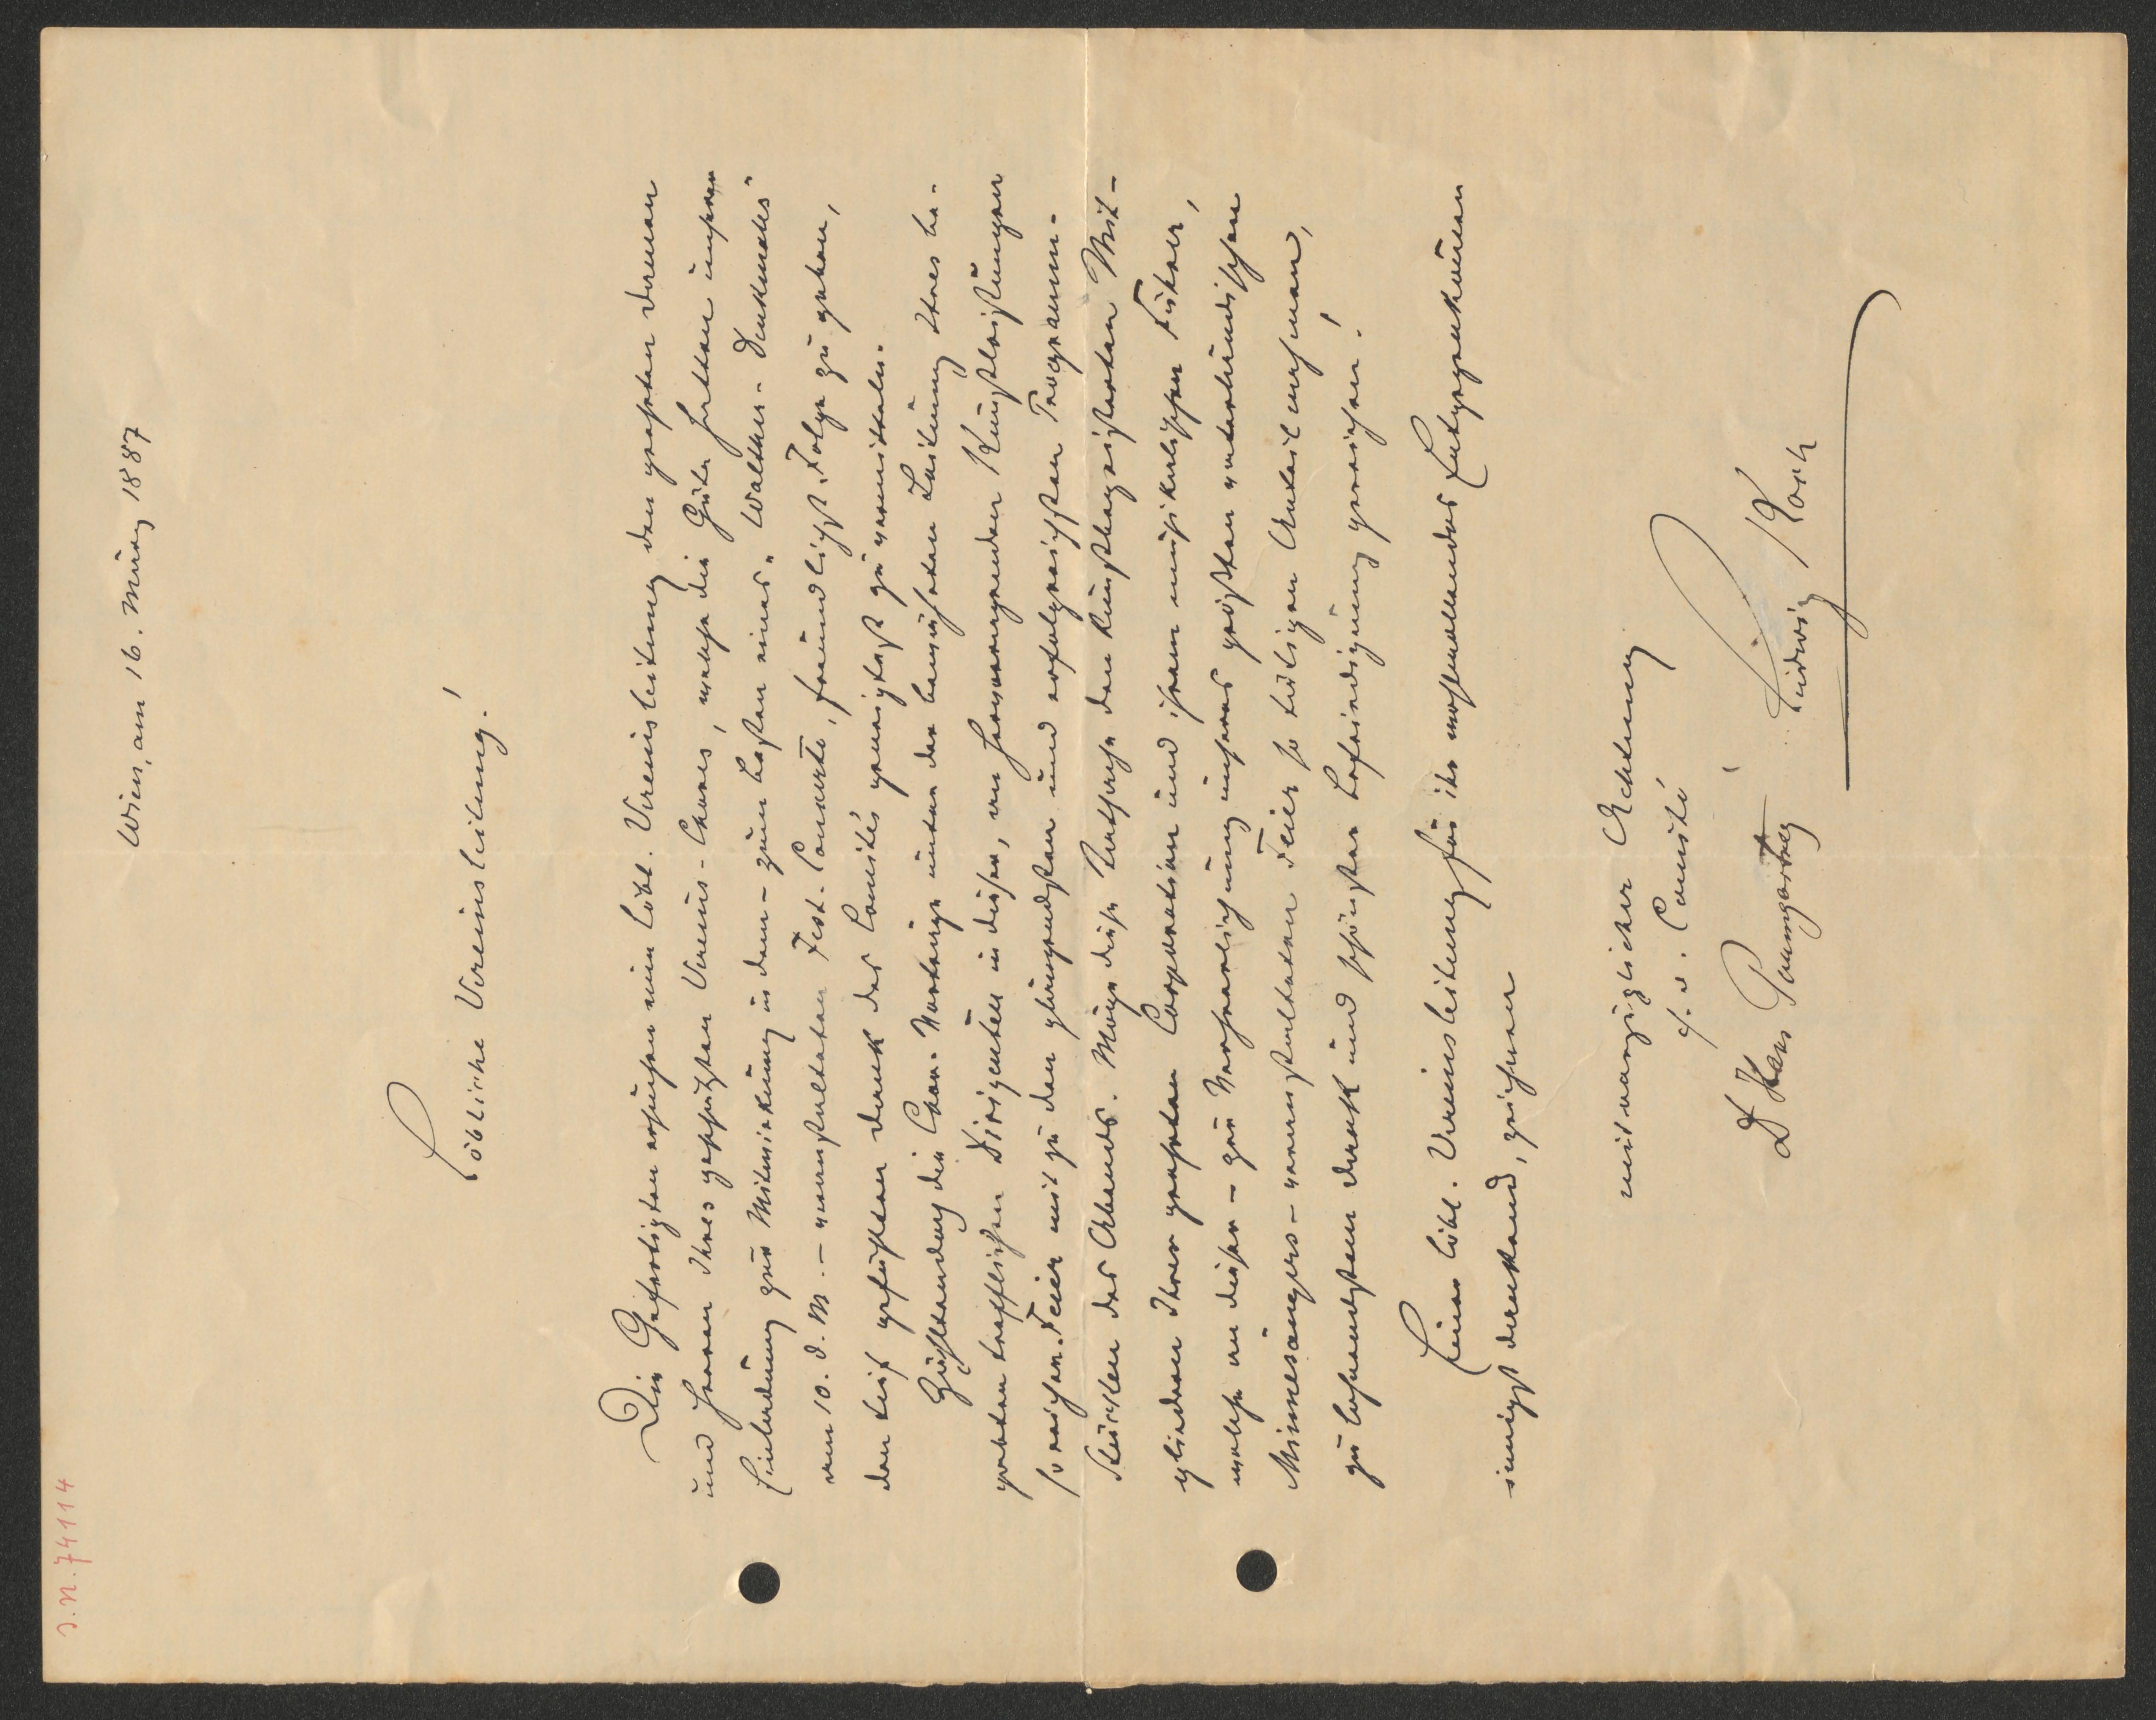 J.N. 74114
Wien, am 16. März 1887
Löbliche Vereinsleitung!
Die Gefertigten ersuchen eine löbl. Vereinsleitung den geehrten Damen
und Herren Ihres geschätzten Vereins-Chores, welche die Güte hatten unserer
Einladung zur Mitwirkung in dem – zum Besten eines „Walther-Denkmales"
am 10. d. M. – veranstalteten Fest-Concerte, freundlichst Folge zu geben,
den tief gefühlten Dank des Comités geneigtest zu vermitteln.
Zählten doch die Chor-Vorträge unter der bewährten Leitung Ihres be-
gabten trefflichen Dirigenten in dieser, an hervorragenden Kunstleistungen
so reichen Feier mit zu den glänzendsten und erfolgreichsten Programm-
stücken des Abends. Möge diese Thatsache den kunstbegeisterten Mit-
gliedern Ihrer geehrten Corporation und ihrem musikalischen Führer,
welche an dieser – zur Verherrlichung unseres größten vaterländischen
Minnesängers – veranstalteten Feier so tätigen Anteil nahmen,
zu lohnendstem Dank und schönster Befriedigung gereichen!
Einer löbl. Vereinsleitung für ihr wohlwollendes Entgegenkommen
innigst dankend, zeichnen
mit vorzüglicher Achtung
f. d. Comité
Dr Hans Paumgartner
Ludwig Koch